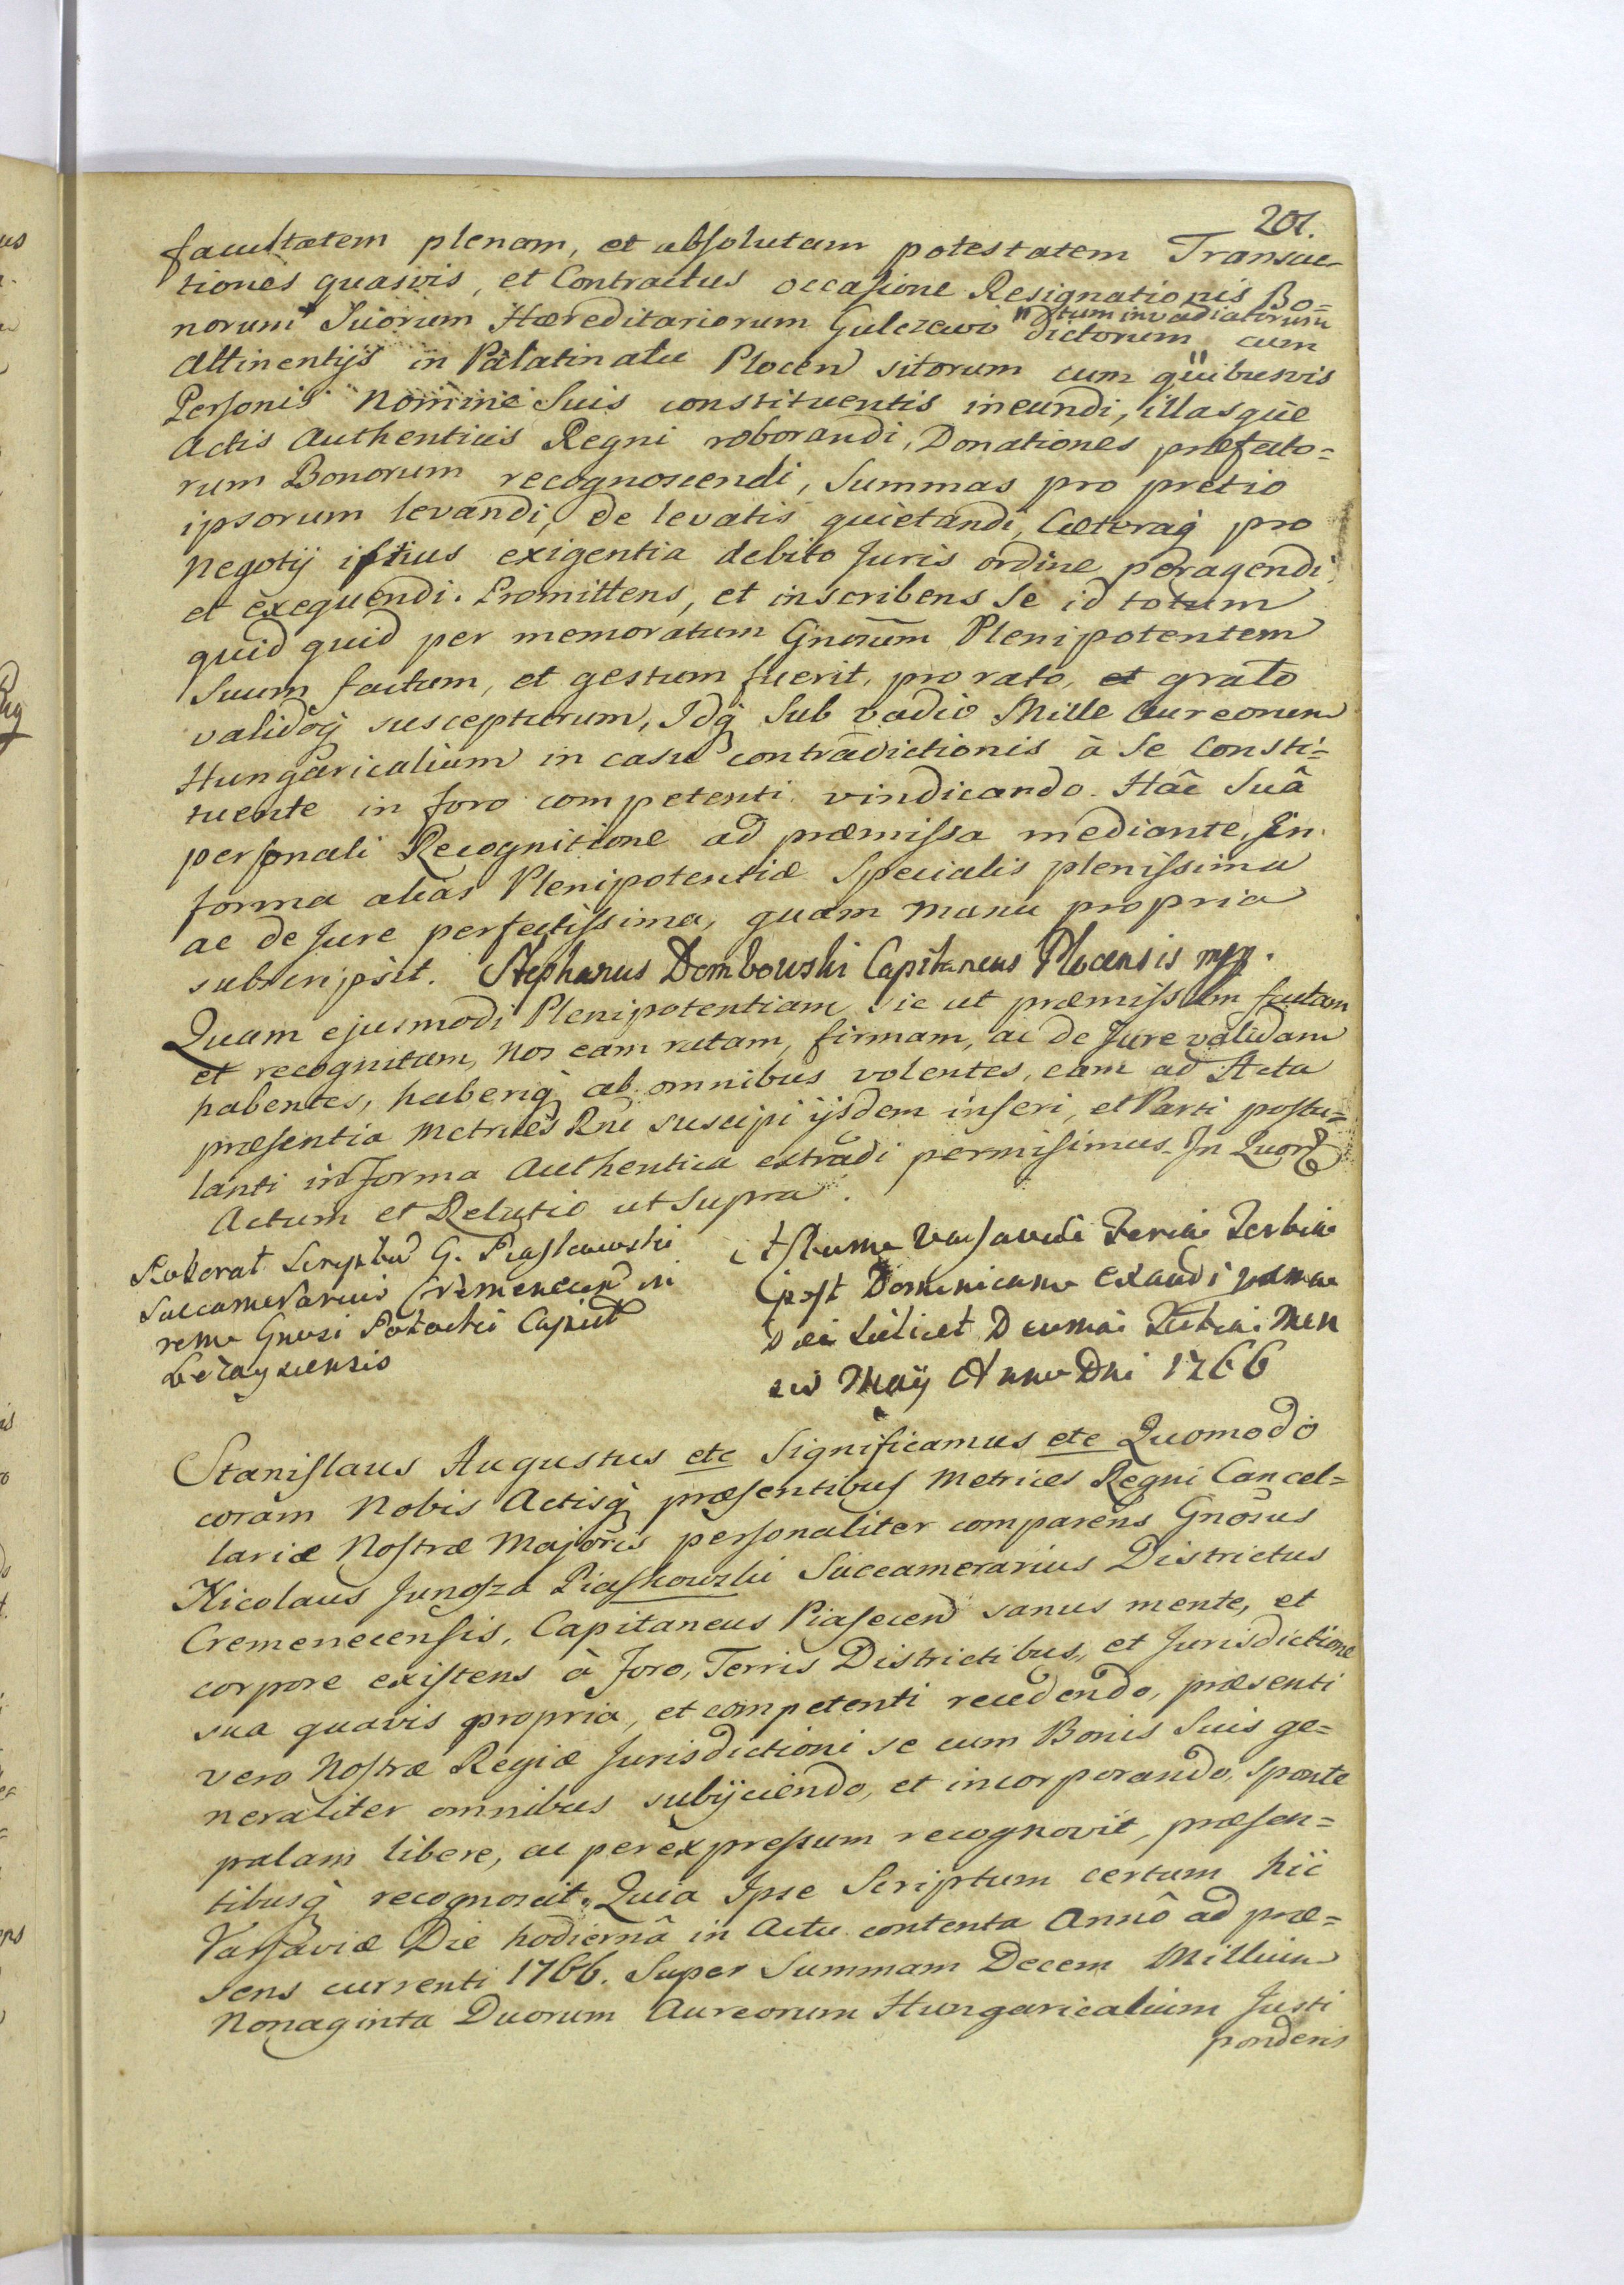 201.
facultatem plenam, et absolutam potestatem Transac-
tiones quasvis, et Contractus occasione Resignationis Bo=
norum Suorum Hæreditariorum Gulczewo " dictorum cum
"tum invadiatorum
Attinentijs in Palatinatu Plocen sitorum cum quibusvis
Personis Nomine Suis constituentis ineundi, illasque
Actis Authenticis Regni roborandi, Donationes præfato=
rum Bonorum recognoscendi, Summas pro pretio
ipsorum levandi, de levatis quietandi, Cæteraq pro
Negotij istius exigentia debito Juris ordine peragendi
et exequendi. Promittens, et inscribens Se id totum
quid quid per memoratum Gnosum Plenipotentem
Suum factum, et gestum fuerit, pro rato, et grato
validoq suscepturum, Idq Sub vadio Mille Aureorum
Hungaricalium in casu contradictionis à Se Consti=
tuente in foro competenti vindicando. Hâc Suâ
personali Recognitione ad præmissa mediante, In
forma alias Plenipotentiæ Specialis plenissima
ac de Jure perfectissima, quam manu propria
subscripsit. Stephanus Dembowski Capitaneus Plocensis mpp.
Quam ejusmodi Plenipotentiam sic ut præmissum factam
et recognitam, Nos eam ratam, firmam, ac de Jure validam
habentes, haberiq ab omnibus volentes, eam ad Acta
præsentia Metrices Rni suscipi ijsdem inseri, et Parti postu=
lanti in forma Authentica extradi permisimus. In Quor
Actum et Relatio ut Supra.
Roborat Scriptum G. Piaskowski
Succamerarius Cremenecen in
rem Gnosi Potocki Capit
Leżayscensis
Actum Varsaviæ Feria Tertia
post Dominicam Exaudi
Die Scilicet Decima Tertia Men
sis Maij Anno Dni 1766
Stanislaus Augustus etc Significamus etc Quomodo
coram Nobis Actisq præsentibus Metrices Regni Cancel=
lariæ Nostræ Majoris personaliter comparens Gnosus
Nicolaus Junosza Piaskowski Succamerarius Districtus
Cremenecensis, Capitaneus Piasecen sanus mente, et
corpore existens à foro, Terris Districtibus, et Jurisdictione
sua quavis propria, et competenti recedendo, præsenti
vero Nostræ Regiæ Jurisdictioni se cum Bonis Suis ge=
neraliter omnibus subijciendo, et incorporando, sponte
palam libere, ac per expressum recognovit, præsen=
tibusq recognoscit. Quia Ipse Scriptum certum hic
Varsaviæ Die hodiernâ in Actu contenta Annô ad præ=
sens currenti 1766. Super Summam Decem Millium
Nonaginta Duorum Aureorum Hungaricalium Justi
ponderis